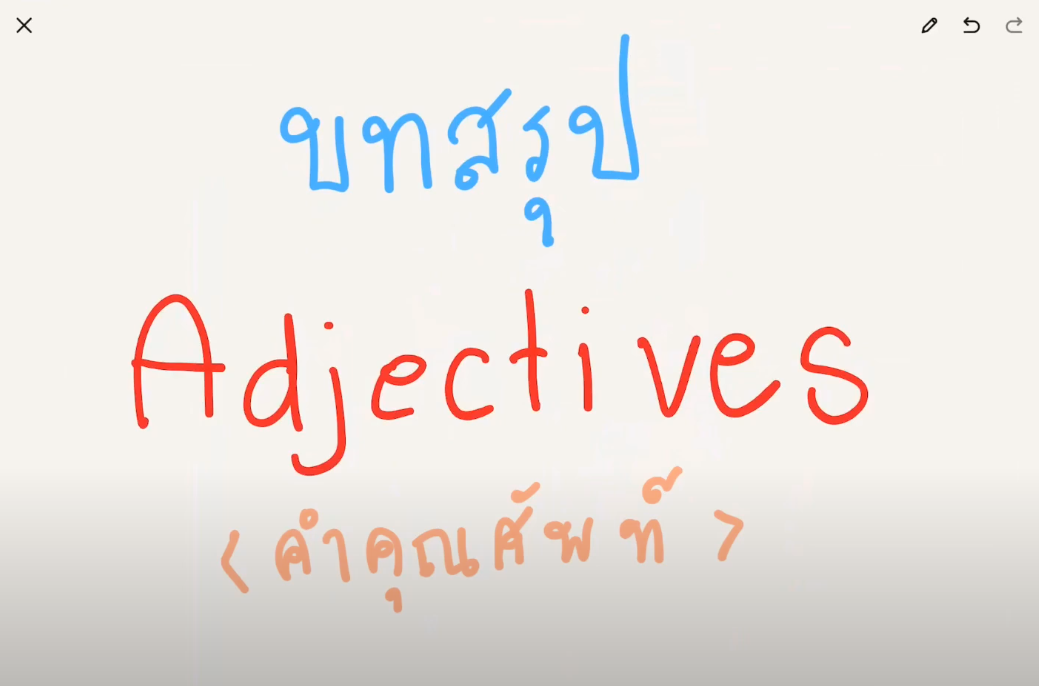 บทสรุป
Adjectives
<คำคุณศัพท์>